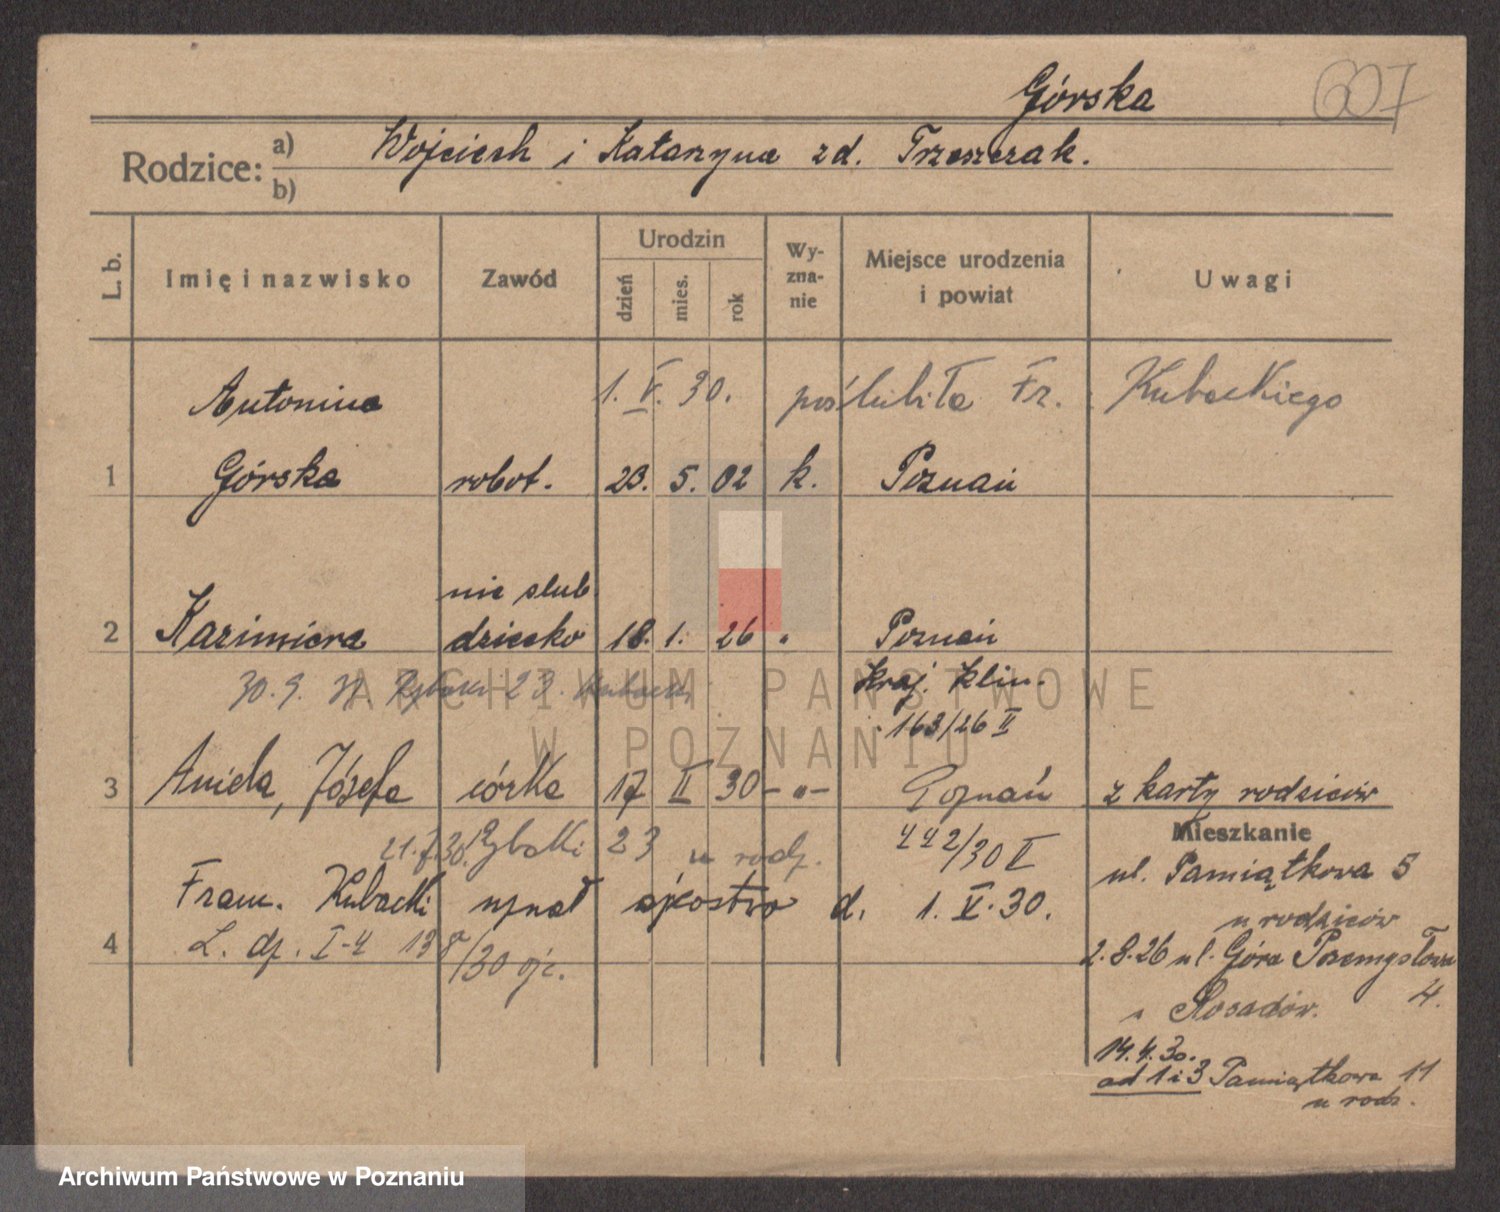 Górska
607
Rodzice: a) Wojciech i Katarzyna zd. Trzeszczak.
b)
L. b.
Imię i nazwisko
Zawód
Urodzin
dzień
mies.
rok
Wy-
zna-
nie
Miejsce urodzenia
i powiat
Uwagi
1. V. 30. poślubiła Fr. Kubackiego
Antonina
1 Górska robot. 23. 5. 02 k. Poznań
nie slub
2 Kazimiera dziecko 18. 1. 26 " Poznań
30. 9. 23. Kubacki
Kraj. Klin.
163/26 II
3 Aniela, Józefa córka 17 II 30 -"- Poznań z karty rodziców
21.7.30. Rybaki 23 u rodz.
442/30 II
Mieszkanie
ul. Pamiątkowa 5
u rodziców
Fran. Kubacki uznał ojcostwo d. 1. V. 30.
4 L. dz. I-4 138/30 ojc.
2.8.26 ul. Góra Przemysława
4.
Rosadów.
14.4.30.
ad 1 i 3 Pamiątkowa 11
u rodz.
ARCHIWUM PAŃSTWOWE
W POZNANIU
Archiwum Państwowe w Poznaniu